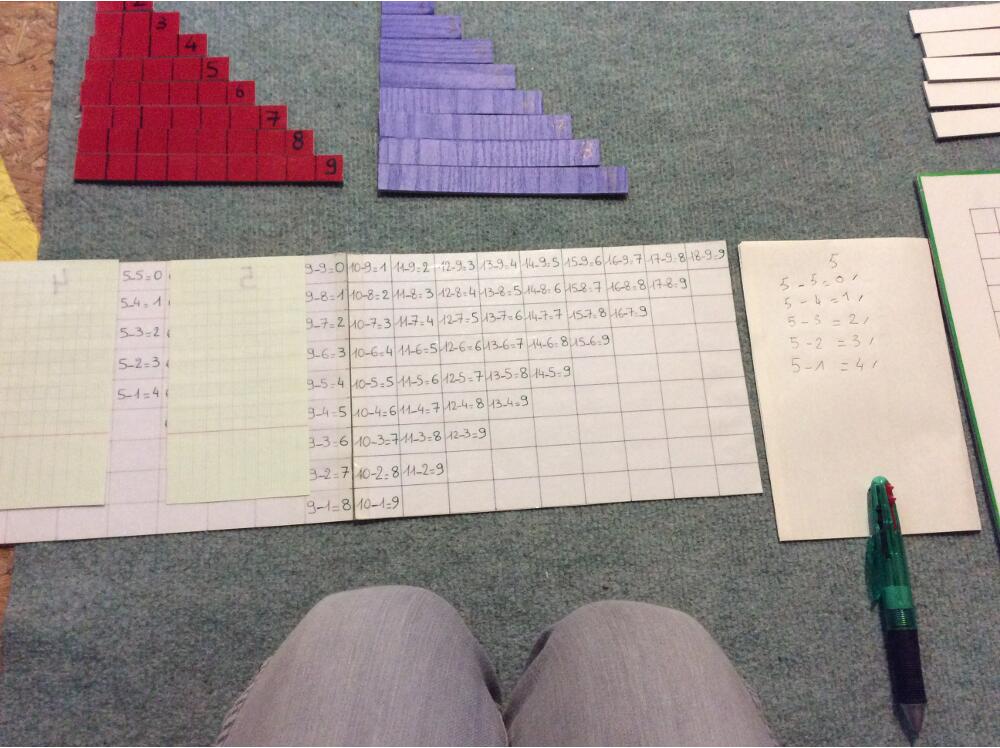 2
3
4
5
6
7
8
9
4
5
5-5=0 9-9=0 10-9=1 11-9=2 12-9=3 13-9=4 14-9=5 15-9=6 16-9=7 17-9=8 18-9=9
5-4=1 9-8=1 10-8=2 11-8=3 12-8=4 13-8=5 14-8=6 15-8=7 16-8=8 17-8=9
5-3=2 9-7=2 10-7=3 11-7=4 12-7=5 13-7=6 14-7=7 15-7=8 16-7=9
5-2=3 9-6=3 10-6=4 11-6=5 12-6=6 13-6=7 14-6=8 15-6=9
5-1=4 9-5=4 10-5=5 11-5=6 12-5=7 13-5=8 14-5=9
9-4=5 10-4=6 11-4=7 12-4=8 13-4=9
9-3=6 10-3=7 11-3=8 12-3=9
9-2=7 10-2=8 11-2=9
9-1=8 10-1=9
5
5-5=0,
5-4=1,
5-3=2,
5-2=3,
5-1=4,